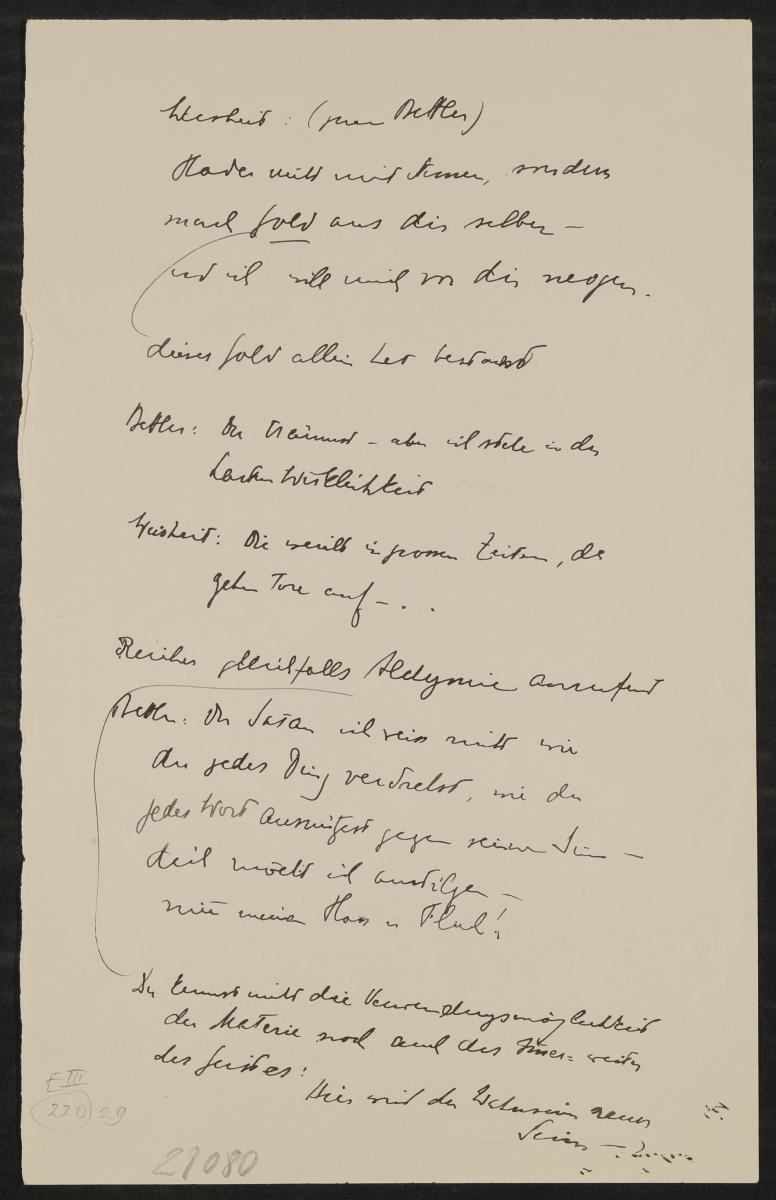 Weisheit: (zum Bettler)
Hader nicht mit Armen, sondern
mach Gold aus dir selber –
und ich will mich vor dir neigen.
dieses Gold allein hat bestand
Bettler: Du träumst – aber ich stehe in der
harten Wirklichkeit
Weisheit: Die weicht in grossen Zeiten, da
gehen Tore auf – . . .
Reicher gleichfalls Alchymie anrufend
Bettler: Du Satan ich weiss nicht wie
du jedes Ding verdrehst, wie du
jedes Wort ausnützest gegen seinen Sinn –
dich möcht ich austilgen –
mit meinem Hass u Fluch!
Du kennst nicht die Verwendungsmöglichkeit
der Materie noch auch des
des Geistes!
Hier wird der Wahnsinn neuer
Sinn –
E III
220 29
29080